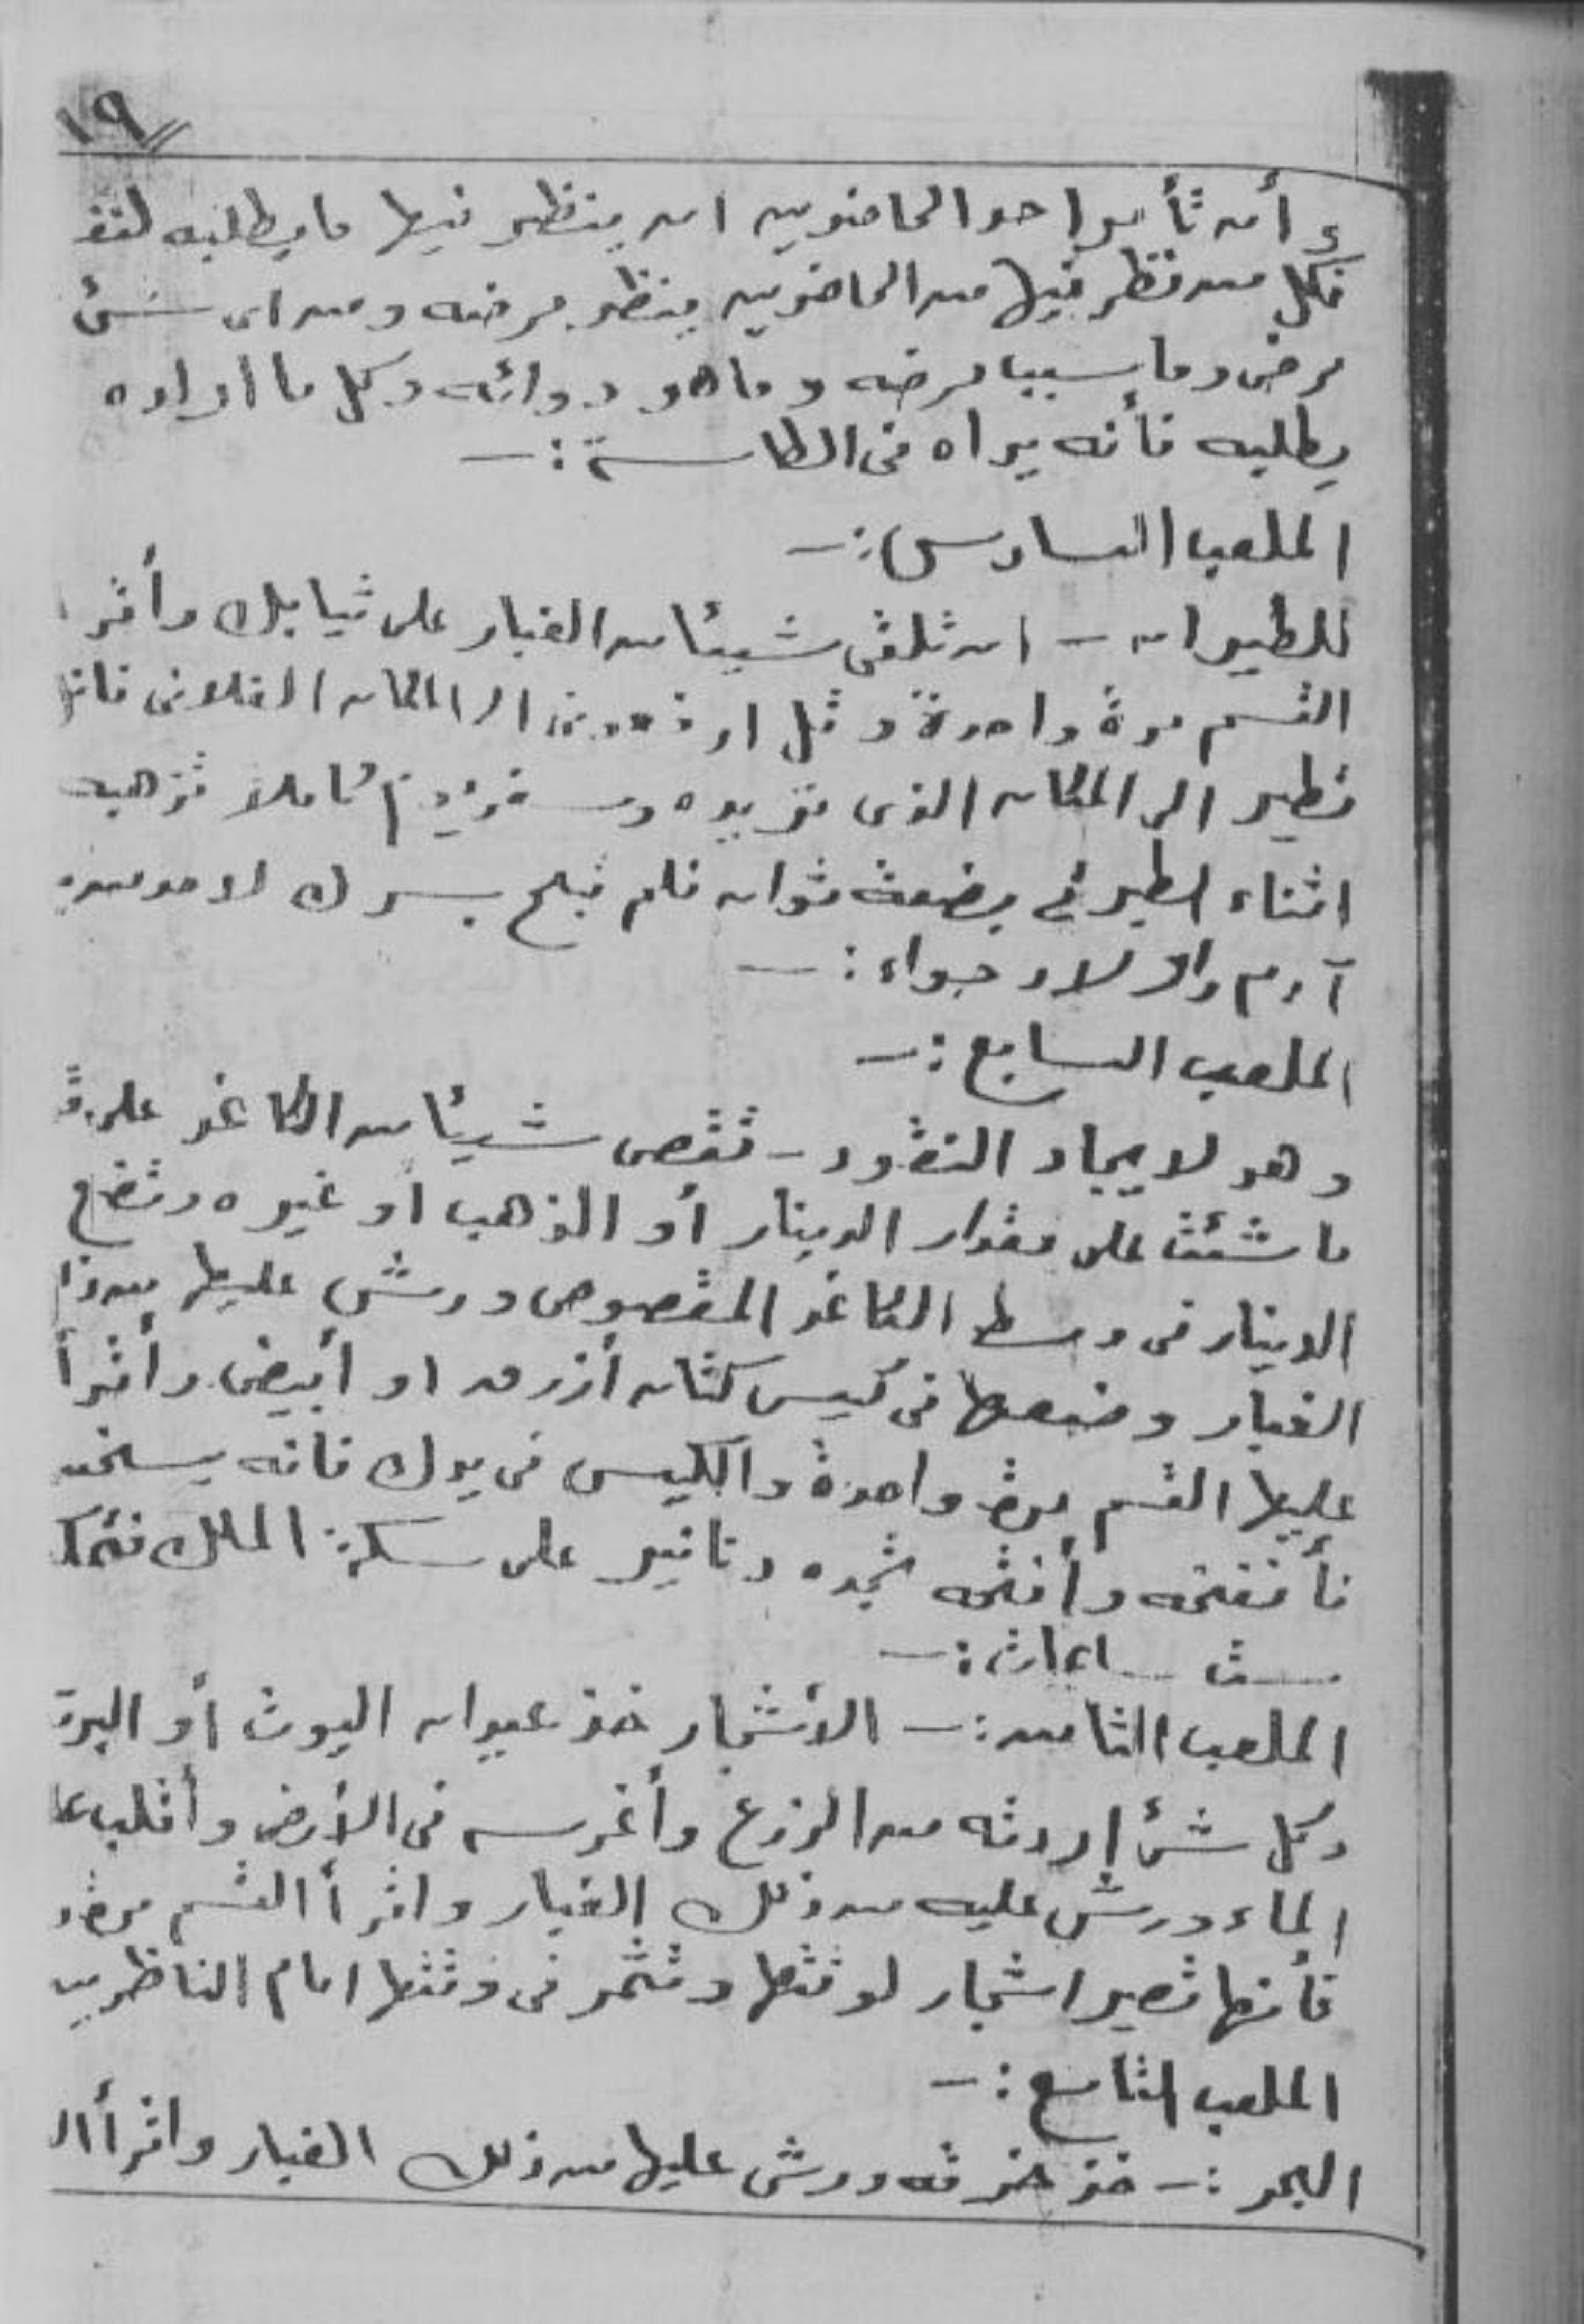 ١٩
وأن تأمر احد الحاضرين ان ينظر فيها ما يطلبه لنفـ
فكل من نظر فيها من الحاضرين ينظر مرضه ومن اى شئ
مرض وما سبب مرضه وما هو دوائه وكل ما اراده
يطلبه فأنه يراه فى الطاسة :ـ
الملعب السادس :ـ
للطيران ـ ان تلقى شيئا من الغبار على ثيابك وأقر
القسم مرة واحدة وقل الى المكان الفلانى فانك
تطير الى المكان الذى تريده كاملا تذهبه
اثناء الطير فى بضعة ثوان فلم تبح بسرك لاحد من
آدم واولاد حواء :ـ
الملعب السابع :ـ
وهو لايجاد النقود ـ تقص شيئا من الكاغد على
ما شئت على مقدار الدينار أو الذهب او غيره وتضع
الدينار فى وسط الكاغد المقصوص ورش عليها من ذا
الغبار وضعها فى كيس كتان أزرق او أبيض وأقرأ
عليها القسم مرة واحدة والكيس فى يدك فانه يسخن
فأنفخه وأفتحه تجده دنانير على سكة الملك
ست ساعات :ـ
الملعب الثامن :ـ الأشجار خذ عيدان التوت أو
وكل شئ اردته من الزرع وأغرسه فى الأرض وأقلب عا
الماء ورش عليه من ذلك الغبار واقرأ القسم مرة و
فأنها تصير اشجار لوقتها وتثمر فى وقتها امام الناظرين
الملعب التاسع :ـ
البحر :ـ خذ خرقه ورش عليها من ذلك الغبار واقرأ ال